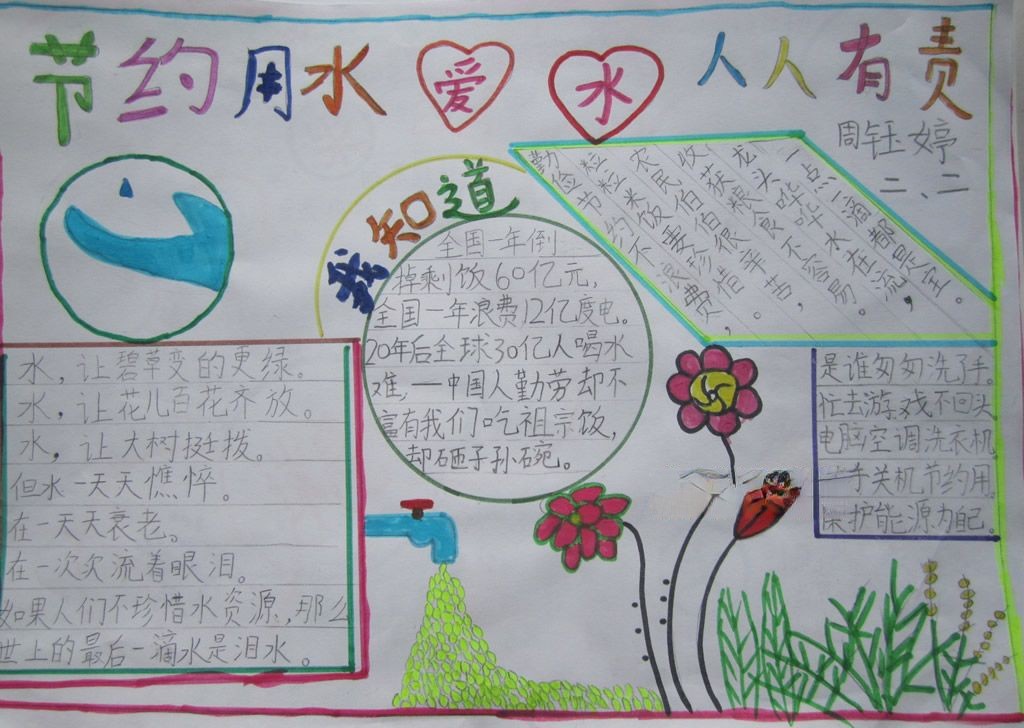 节约用水 爱水 人人有责
周钰婷
二、二
我知道
全国一年倒
掉剩饭60亿元，
全国一年浪费12亿度电。
20年后全球30亿人喝水
难，一中国人勤劳却不
富有我们吃祖宗饭，
却砸子孙碗。
勤俭节约不浪费，
粒粒米饭要珍惜。
农民伯伯很辛苦，
收获粮食不容易。
龙头哗哗水在流，
一点一滴都是。
水，让碧草变的更绿。
水，让花儿百花齐放。
水，让大树挺拨。
但水一天天憔悴。
在一天天衰老。
在一次次流着眼泪。
如果人们不珍惜水资源，那么
世上的最后一滴水是泪水。
是谁匆匆洗了手。
忙去游戏不回头
电脑空调洗衣机
一手关机节约用。
保护能源为自己。